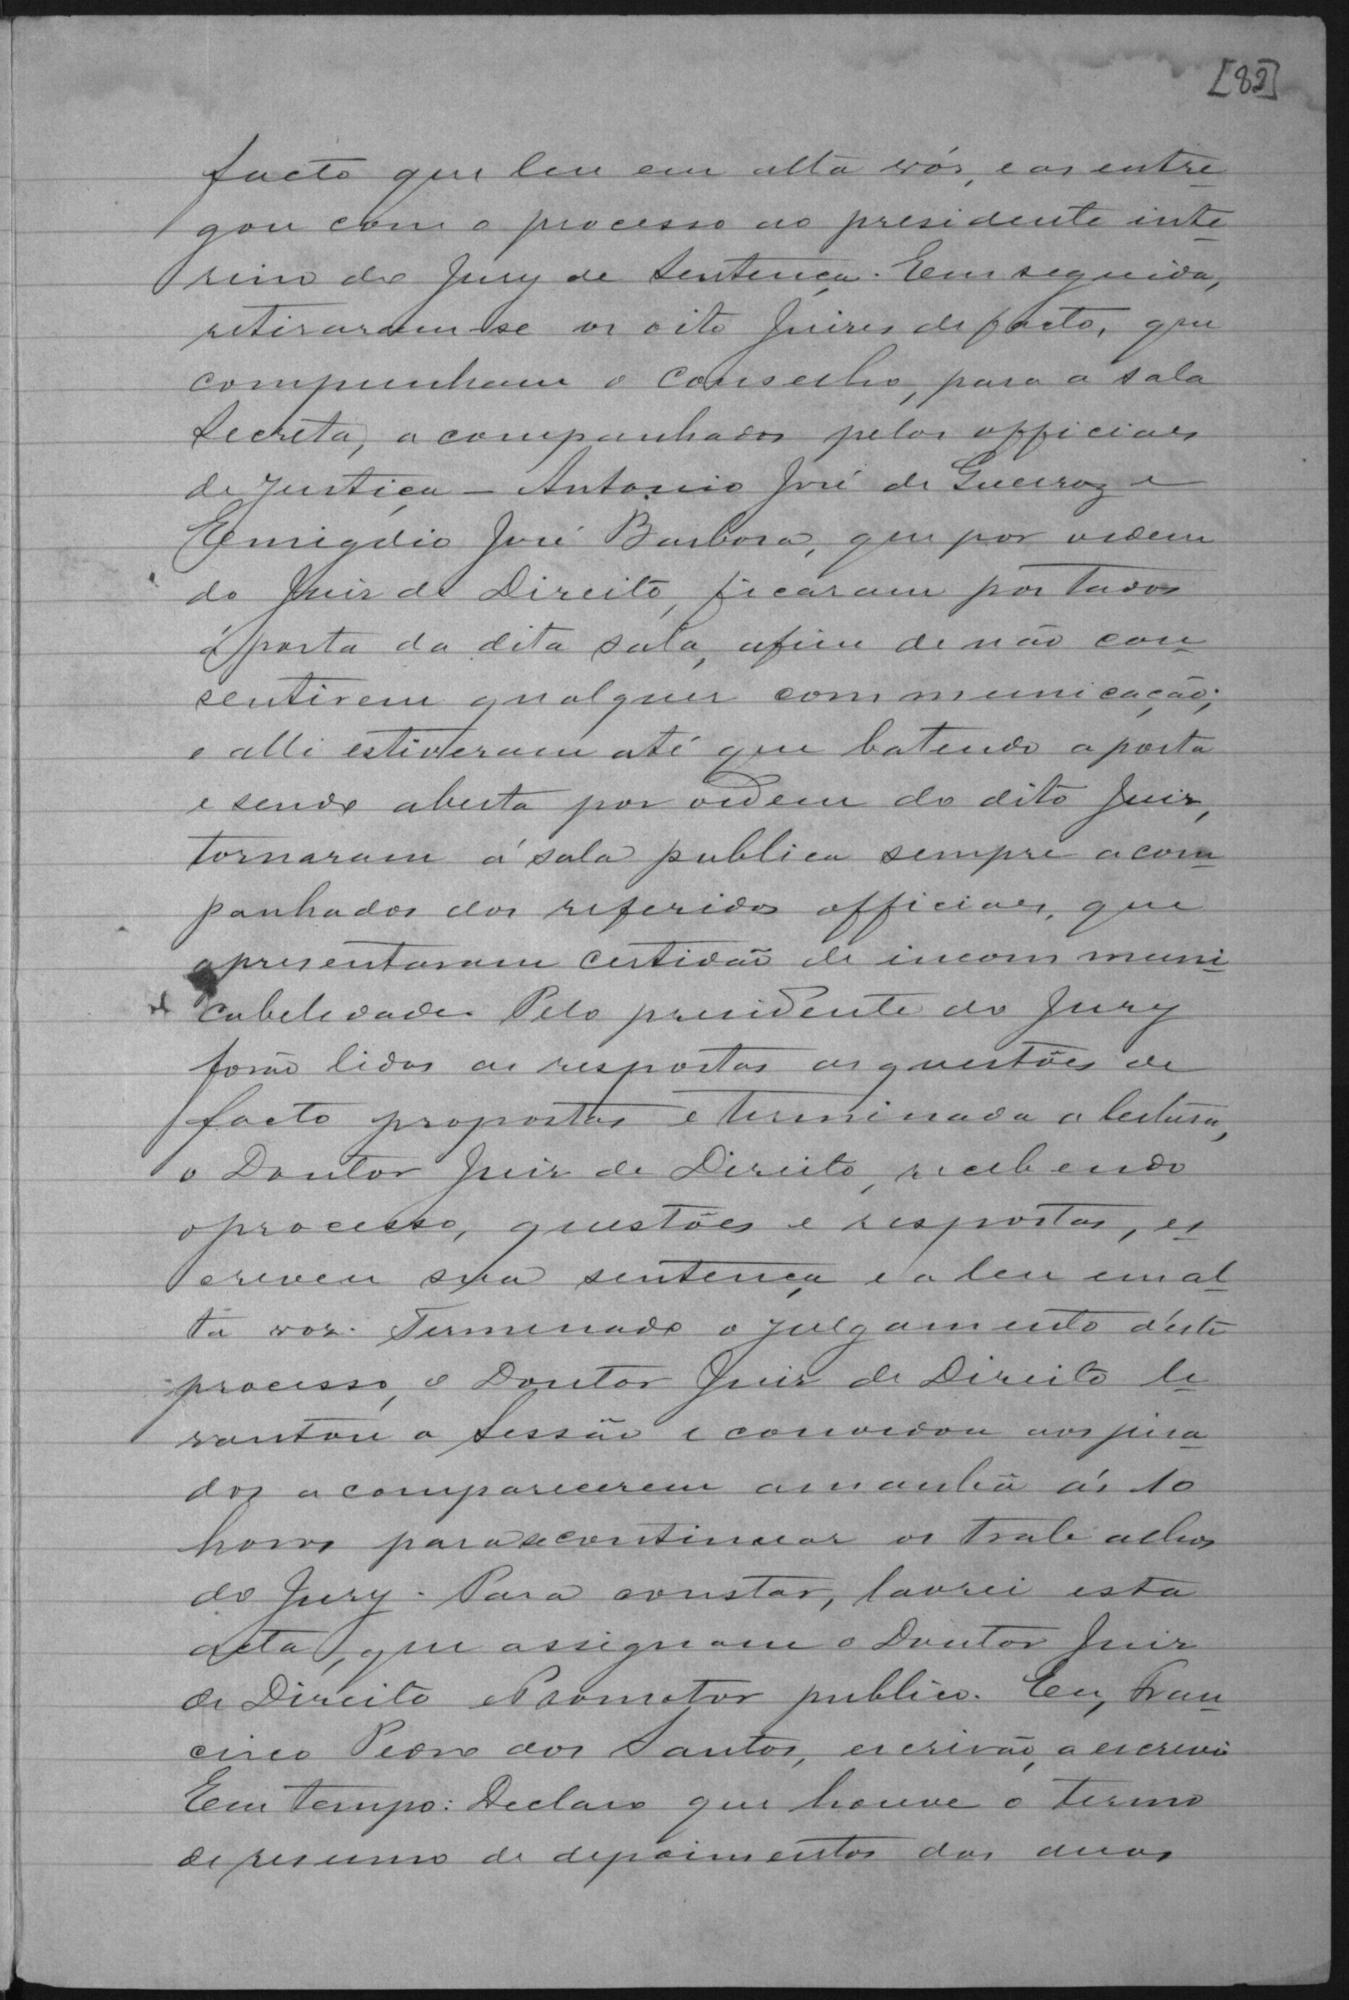 [82]
facto que leu em alta vós, e as entre-
gou com o processo ao presidente inte-
rino do Jury de Sentença. Em seguida,
retiraram-se os oito Juizes de facto, que
compunham o conselho, para a sala
Secreta, acompanhados pelos officiaes
de Justiça — Antonio José de Queiroz e
Emigdio José Barbosa, que por ordem
do Juiz de Direito, ficaram postados
á porta da dita sala, afim de não con-
sentirem qualquer communicação;
e alli estiveram até que batendo a porta
e sendo aberta por ordem do dito Juiz,
tornaram á sala publica sempre acom-
panhados dos referidos officiaes, que
apresentaram certidão de incommuni-
cabelidade. Pelo presidente do Jury
forão lidas as respostas as questões de
facto propostas e terminada a leitura,
o Doutor Juiz de Direito, recebendo
o processo, questões e respostas, es-
creveu sua sentença e a leu em al-
ta voz. Terminado o julgamento d'este
processo, o Doutor Juiz de Direito le-
vantou a Sessão e convidou aos jura-
dos a comparecerem amanhã ás 10
horas para continuar os trabalhos
do Jury. Para constar, lavrei esta
acta, que assignam o Doutor Juiz
de Direito e Promotor publico. Eu, Fran-
cisco Pedro dos Santos, escrivão, a escrevi
Em tempo: Declaro que houve o termo
de resumo de depoimentos das duas